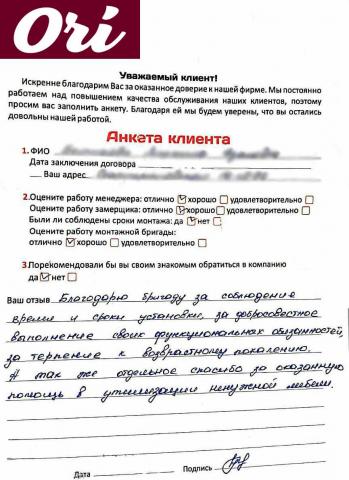 Ori
Уважаемый клиент!
Искренне благодарим Вас за оказанное доверие к нашей фирме. Мы постоянно
работаем над повышением качества обслуживания наших клиентов, поэтому
просим вас заполнить анкету. Благодаря ей мы будем уверены, что вы остались
довольны нашей работой.
Анкета клиента
1. ФИО
Дата заключения договора
Ваш адрес
2.Оцените работу менеджера: отлично хорошо удовлетворительно
Оцените работу замерщика: отлично хорошо удовлетворительно
Были ли соблюдены срок монтажа: да нет
Оцените работу монтажной бригады:
отлично хорошо удовлетворительно
3.Порекомендовали бы вы своим знакомым обратиться в компанию
да нет
Ваш отзыв Благодарю бригаду за соблюдение
время и сроки установки, за добросовестное
выполнение своих функциональных обязанностей,
за терпение к возврастному поколению.
А так же отдельное спасибо за оказанную
помощь в утилизации ненужной мебели.
Дата Подпись